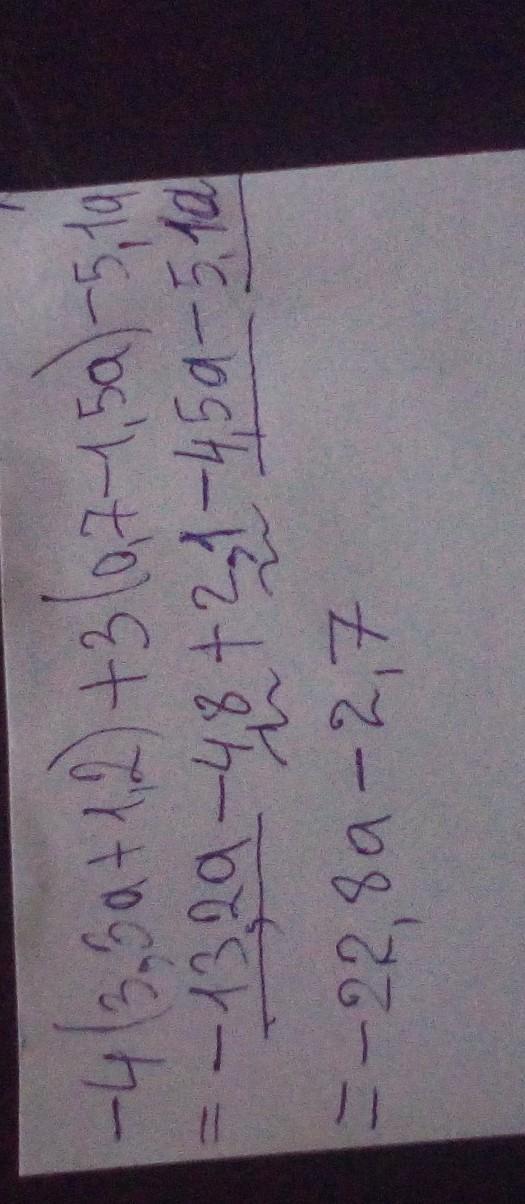 -4(3,3a+1,2)+3(0,7-1,5a)-5,1a
=-13,2a-4,8+2,1-4,5a-5,1a
=-22,8a-2,7